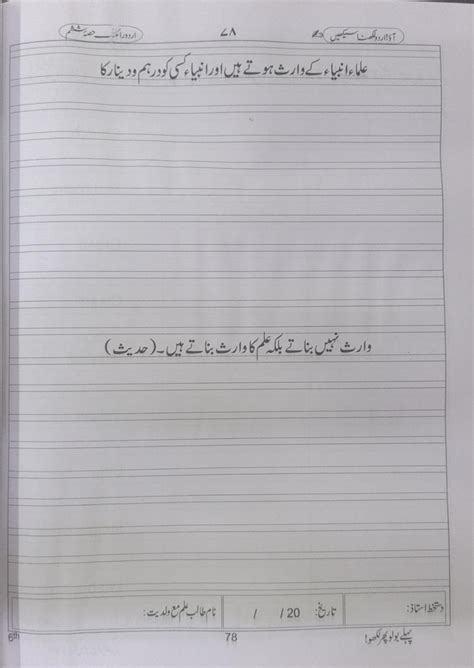 آؤ! اردو لکھنا سیکھیں ۷۸ اردو رائٹنگ حصہ ششم
علماء انبیاء کے وارث ہوتے ہیں اور انبیاء کسی کو درہم و دینار کا
وارث نہیں بناتے بلکہ علم کا وارث بناتے ہیں۔ (حدیث)
دستخط استاذ: تاریخ: / / 20 نام طالب علم مع ولدیت:
پہلے بولو پھر لکھو! 78 6th